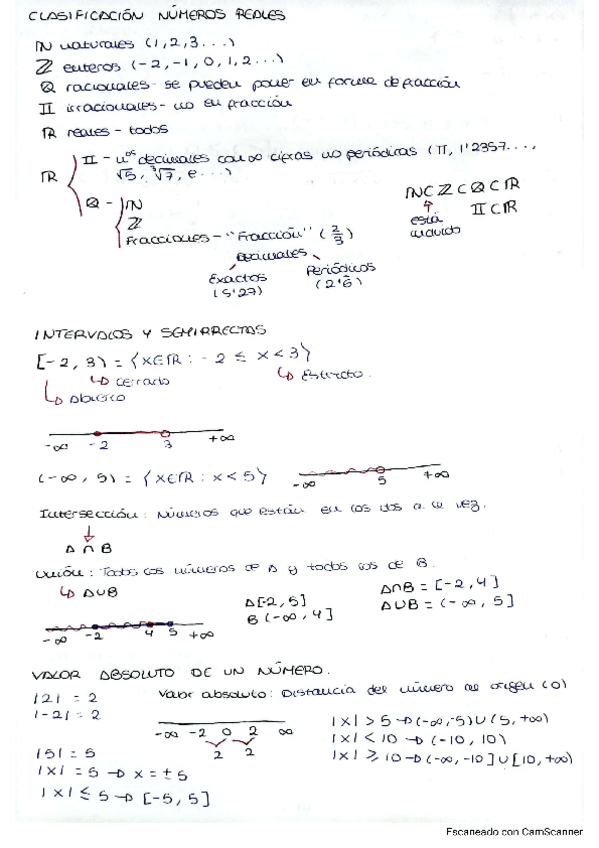 CLASIFICACIÓN NÚMEROS REALES
ℕ naturales (1, 2, 3...)
ℤ enteros (-2, -1, 0, 1, 2...)
ℚ racionales - se pueden poner en forma de fracción
𝕀 irracionales - no en fracción
ℝ reales - todos
ℝ
𝕀 - nos decimales con ∞ cifras no periódicas (π, 1'2357...,
√5, ∛7, e...)
ℚ - ℕ
ℤ
Fracciones - "Fracción" (2/3)
Decimales
Exactos
(5'27)
Periódicos
(2'6̂)
ℕ ⊂ ℤ ⊂ ℚ ⊂ ℝ
está
incluido
𝕀 ⊂ ℝ
INTERVALOS Y SEMIRRECTAS
[-2, 3) = {x∈ℝ : -2 ≤ x < 3}
↳ cerrado
↳ Estricto.
↳ Abierto
-∞ -2 3 +∞
(-∞, 5) = {x∈ℝ : x < 5}
-∞ 5 +∞
Intersección: Números que están en los dos a la vez.
↓
A ∩ B
Unión: Todos los números de A y todos los de B.
↳ A∪B
A [-2, 5]
B (-∞, 4]
A∩B = [-2, 4]
A∪B = (-∞, 5]
-∞ -2 4 5 +∞
VALOR ABSOLUTO DE UN NÚMERO.
|2| = 2
|-2| = 2
Valor absoluto: Distancia del número al origen (0)
-∞ -2 0 2 ∞
2 2
|x| > 5 → (-∞, -5) ∪ (5, +∞)
|x| < 10 → (-10, 10)
|x| ≥ 10 → (-∞, -10] ∪ [10, +∞)
|5| = 5
|x| = 5 → x = ± 5
|x| ≤ 5 → [-5, 5]
Escaneado con CamScanner